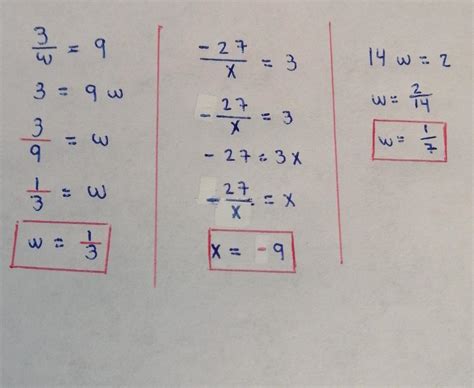 3/w = 9
3 = 9 w
3/9 = w
1/3 = w
w = 1/3
-27/x = 3
-27/x = 3
-27 = 3x
-27/x = x
x = -9
14 w = 2
w = 2/14
w = 1/7